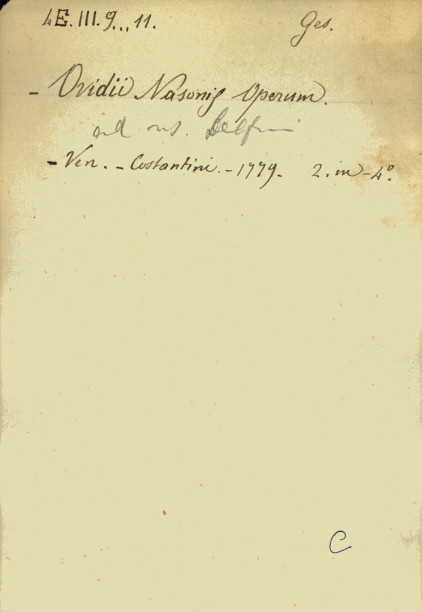 4E.III.9,,,11. Ges.
- Ovidii Nasonis Operum.
ad us. Delfini
- Ven. - Costantini. - 1779. 2. in - 4°.
C